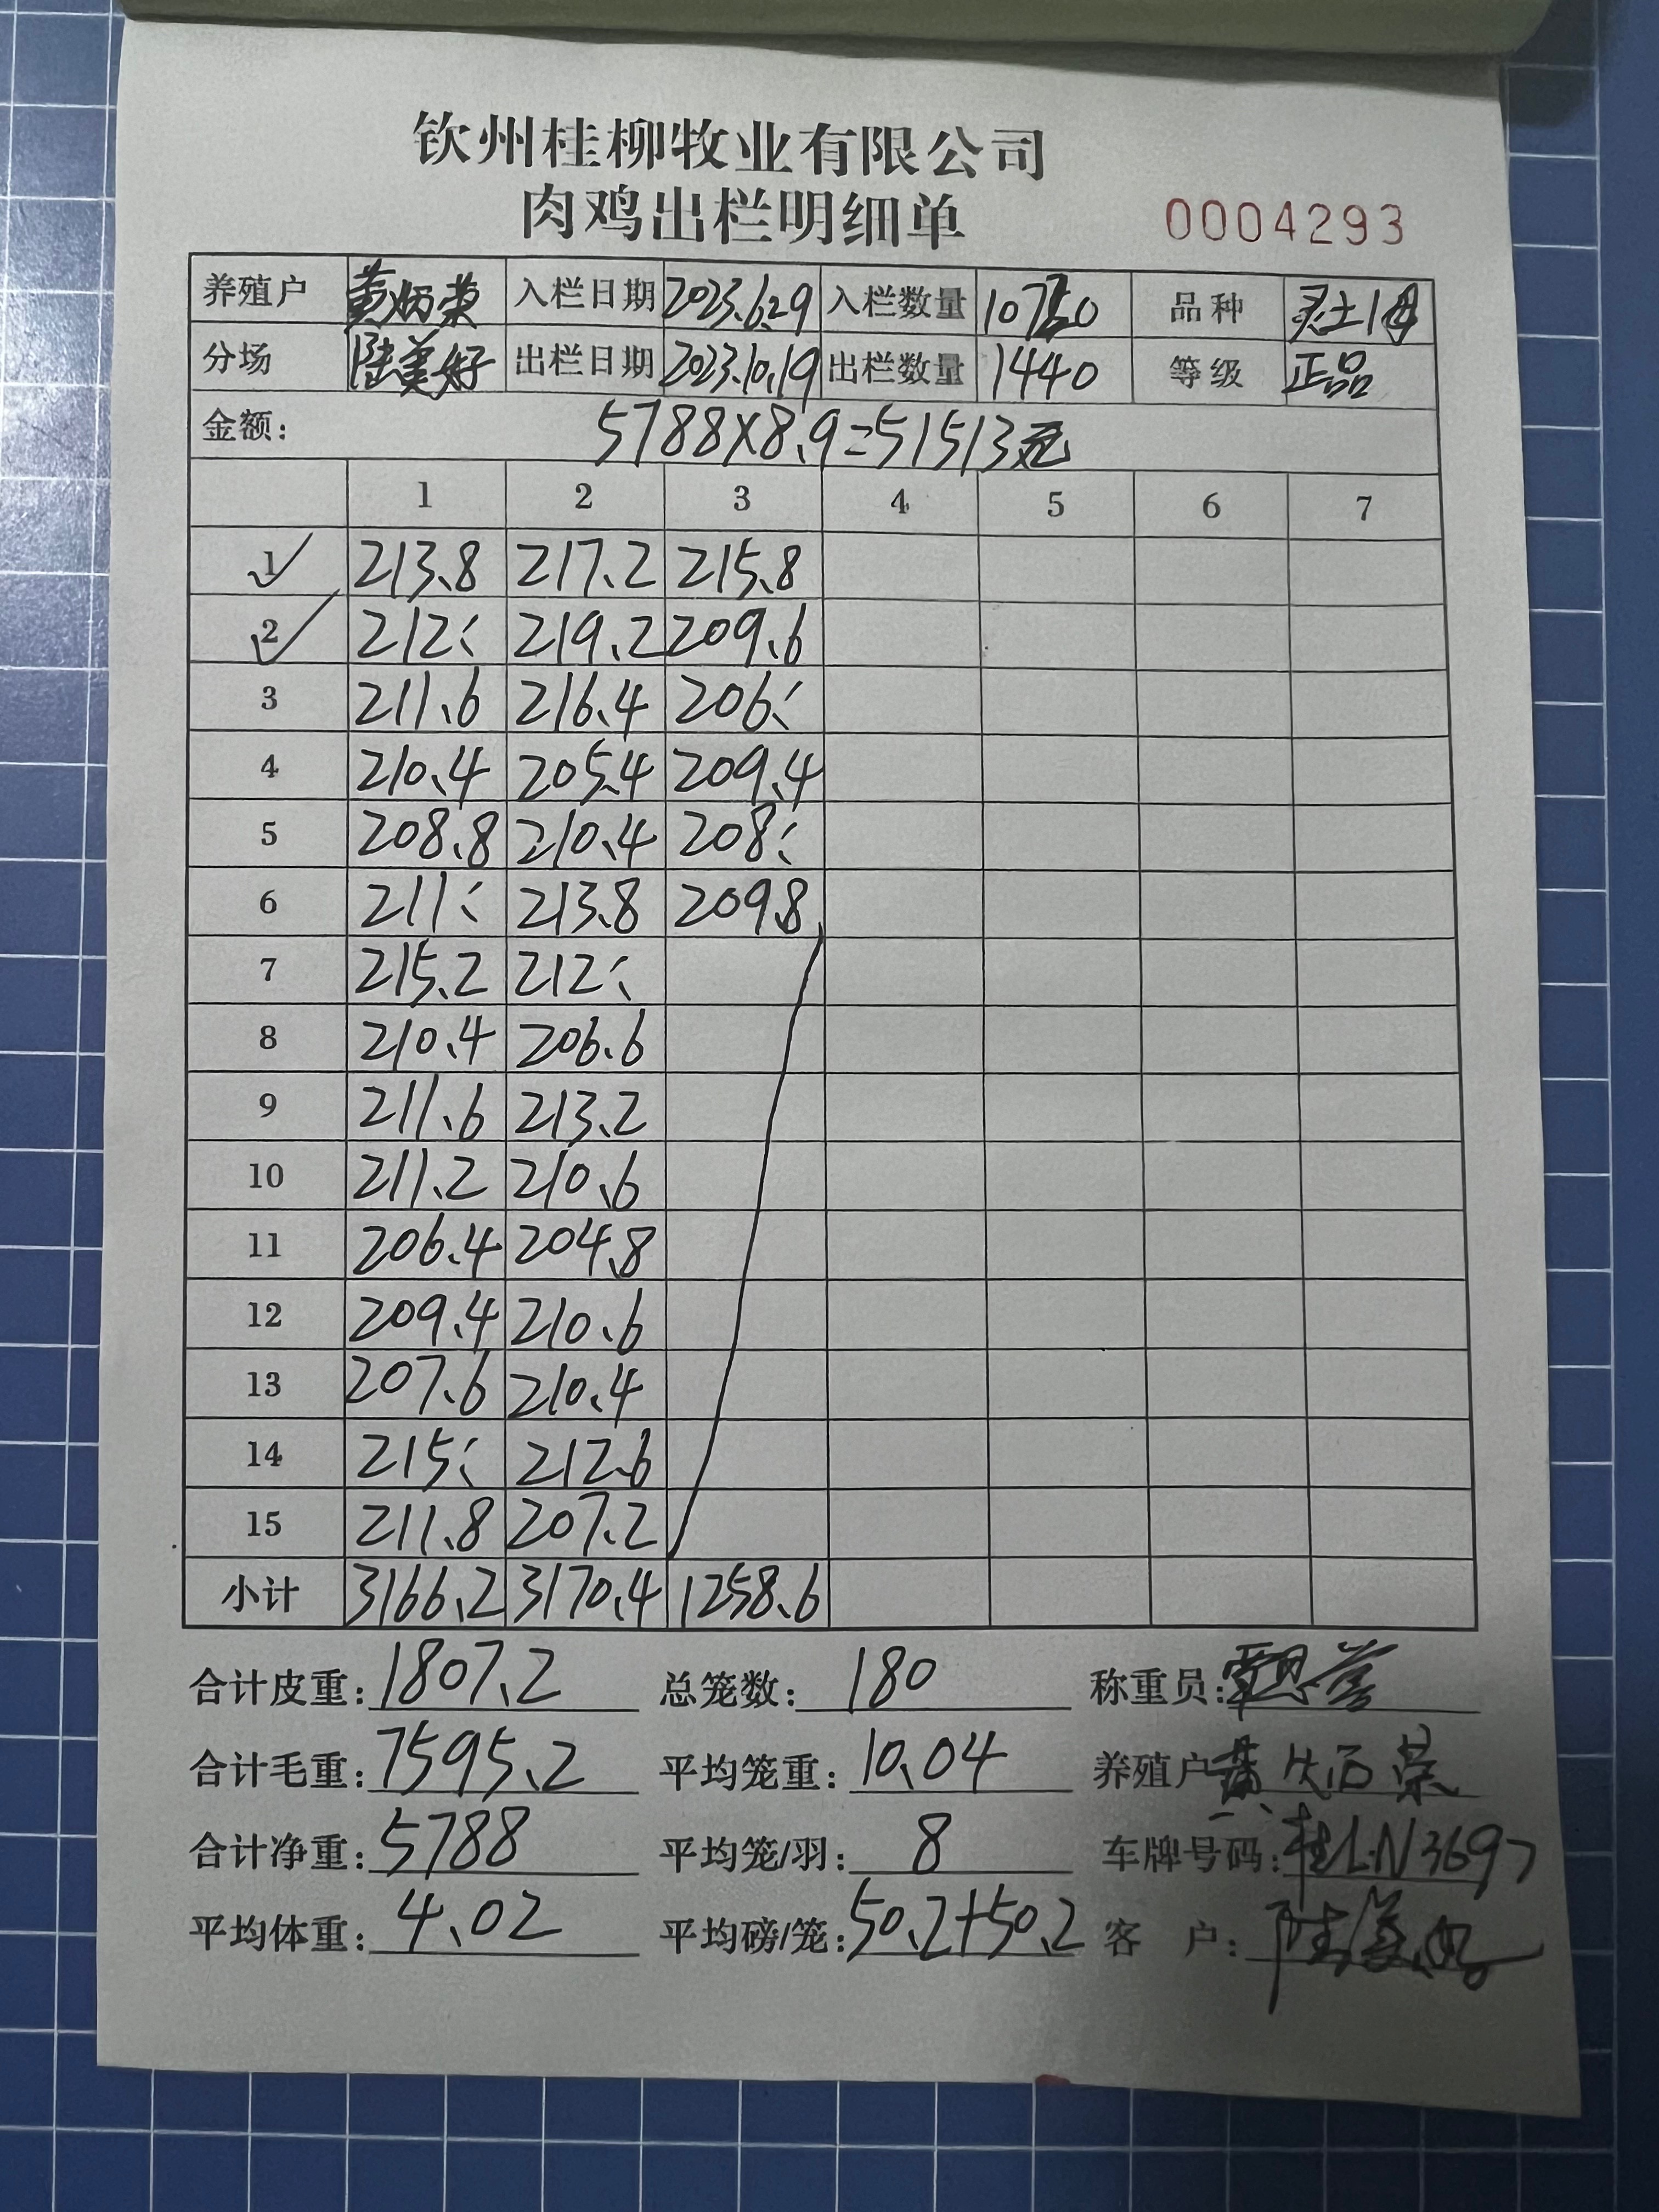 钦州桂柳牧业有限公司
肉鸡出栏明细单 0004293
养殖户 黄炳荣 入栏日期 2023.6.29 入栏数量 10750 品种 灵土1母
分场 陆美好 出栏日期 2023.10.19 出栏数量 1440 等级 正品
金额: 5788×8.9=51513元
1 2 3 4 5 6 7
1 213.8 217.2 215.8
2 212: 219.2 209.6
3 211.6 216.4 206:
4 210.4 205.4 209.4
5 208.8 210.4 208:
6 211: 213.8 209.8
7 215.2 212:
8 210.4 206.6
9 211.6 213.2
10 211.2 210.6
11 206.4 204.8
12 209.4 210.6
13 207.6 210.4
14 215: 212.6
15 211.8 207.2
小计 3166.2 3170.4 1258.6
合计皮重: 1807.2 总笼数: 180 称重员:
合计毛重: 7595.2 平均笼重: 10.04 养殖户 黄炳荣
合计净重: 5788 平均笼/羽: 8 车牌号码: 桂L·N3697
平均体重: 4.02 平均磅/笼: 50.2+50.2 客户: 陆美好